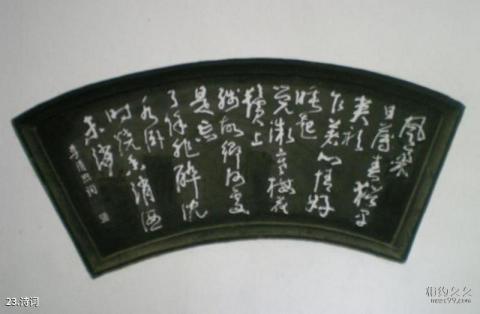 風柔
日薄春猶早
夾衫
乍著心情好
睡起
覺微寒梅花
鬢上
殘故鄉何處
是忘
了除非醉沈
水卧
時燒香消酒
未消
李清照詞
23.诗词
相约久久
meet99.com